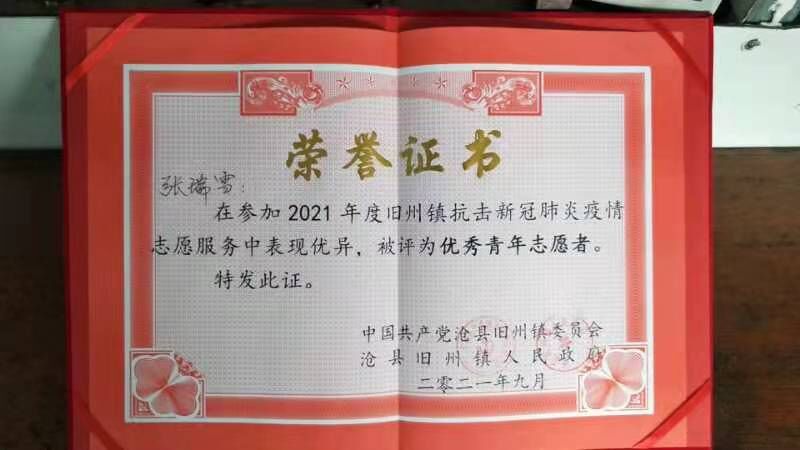 荣誉证书
张瑞雪：
在参加2021年度旧州镇抗击新冠肺炎疫情
志愿服务中表现优异，被评为优秀青年志愿者。
特发此证。
中国共产党沧县旧州镇委员会
沧县旧州镇人民政府
二零二一年九月